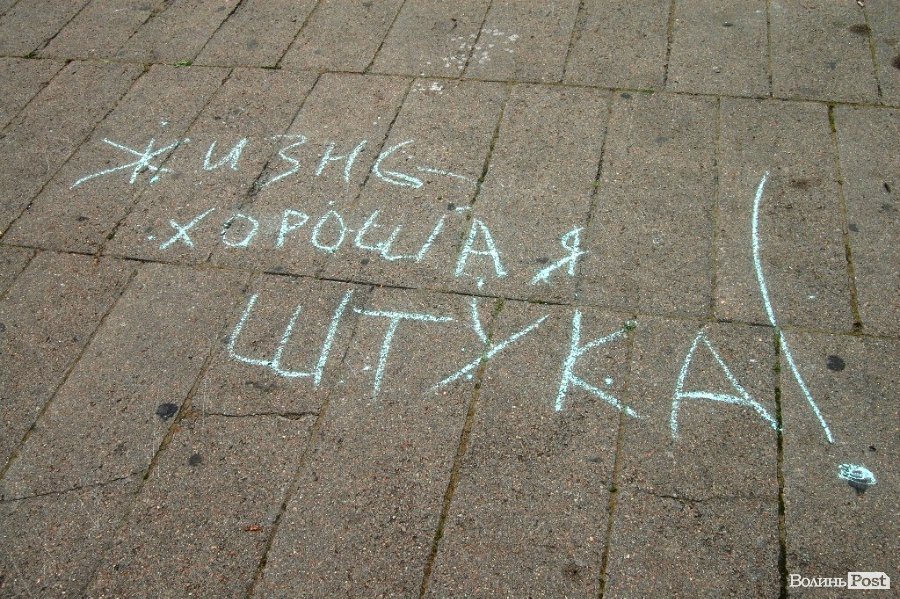 ЖИЗНЬ
ХОРОШАЯ
ШТУКА!
ВолиньPost